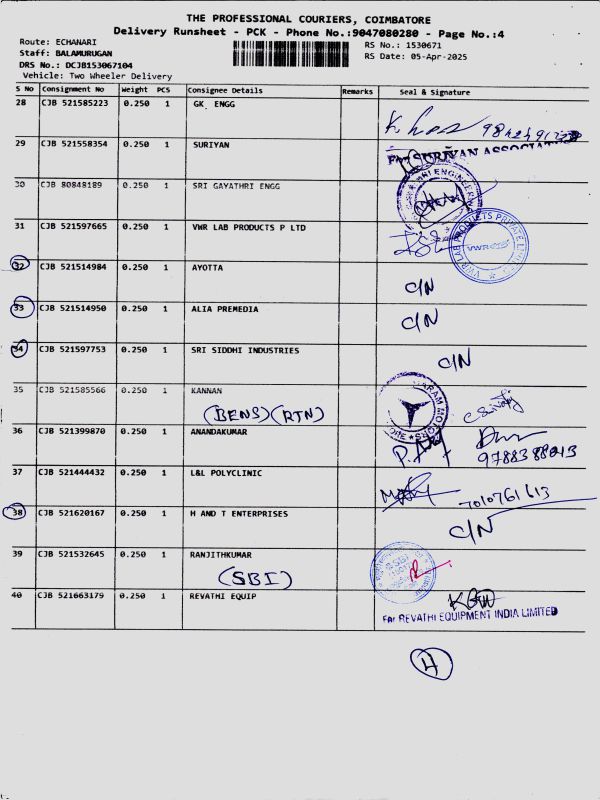 THE PROFESSIONAL COURIERS, COIMBATORE
Delivery Runsheet - PCK - Phone No.:9047080280 - Page No.:4
Route: ECHANARI
RS No.: 1530671
Staff: BALAMURUGAN
RS Date: 05-Apr-2025
DRS No.: DCJB153067104
Vehicle: Two Wheeler Delivery
S No Consignment No Weight PCS Consignee Details Remarks Seal & Signature
28 CJB 521585223 0.250 1 GK ENGG
29 CJB 521558354 0.250 1 SURIYAN
30 CJB 80848189 0.250 1 SRI GAYATHRI ENGG
31 CJB 521597665 0.250 1 VWR LAB PRODUCTS P LTD
VWR LAB PRODUCTS PRIVATE LIMITED
VWR
32 CJB 521514984 0.250 1 AYOTTA
C/N
33 CJB 521514950 0.250 1 ALIA PREMEDIA
C/N
34 CJB 521597753 0.250 1 SRI SIDDHI INDUSTRIES
C/N
35 CJB 521585566 0.250 1 KANNAN
(BENS) (RTN)
36 CJB 521399870 0.250 1 ANANDAKUMAR
37 CJB 521444432 0.250 1 L&L POLYCLINIC
7010761613
38 CJB 521620167 0.250 1 H AND T ENTERPRISES
C/N
39 CJB 521532645 0.250 1 RANJITHKUMAR
(SBI)
40 CJB 521663179 0.250 1 REVATHI EQUIP
For REVATHI EQUIPMENT INDIA LIMITED
4